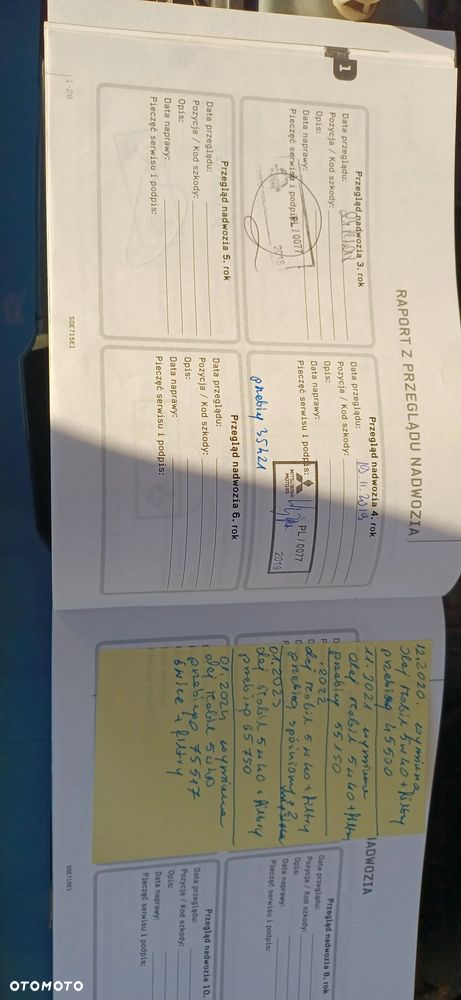 1
RAPORT Z PRZEGLĄDU NADWOZIA
Przegląd nadwozia 3. rok
Data przeglądu:
Pozycja / Kod szkody:
Opis:
Data naprawy:
Pieczęć serwisu i podpis:
PL/0077
2018
Przegląd nadwozia 4. rok
Data przeglądu:
Pozycja / Kod szkody:
11.2019
Opis:
Data naprawy:
Pieczęć serwisu i podpis:
MITSUBISHI
MOTORS
PL/0077
2019
przebieg 35421
Przegląd nadwozia 5. rok
Data przeglądu:
Pozycja / Kod szkody:
Opis:
Data naprawy:
Pieczęć serwisu i podpis:
Przegląd nadwozia 6. rok
Data przeglądu:
Pozycja / Kod szkody:
Opis:
Data naprawy:
Pieczęć serwisu i podpis:
1-28
SDE715E1
NADWOZIA
12.2020. wymiana
olej Mobil 5W40 + filtry
przebieg 45500
11.2021 wymiana
olej Mobil 5W40 + filtry
przebieg 55150
2022
olej Mobil 5W40 + filtry
przebieg
01.2023
olej Mobil 5W40 + filtry
przebieg 65750
01.2024 wymiana
olej Mobil 5W40
przebieg 75517
świece + filtry
Przegląd nadwozia 8. rok
Data przeglądu:
Pozycja / Kod szkody:
Opis:
Data naprawy:
Pieczęć serwisu i podpis:
Przegląd nadwozia 10.
Data przeglądu:
Pozycja / Kod szkody:
Opis:
Data naprawy:
Pieczęć serwisu i podpis:
SDE715E1
OTOMOTO